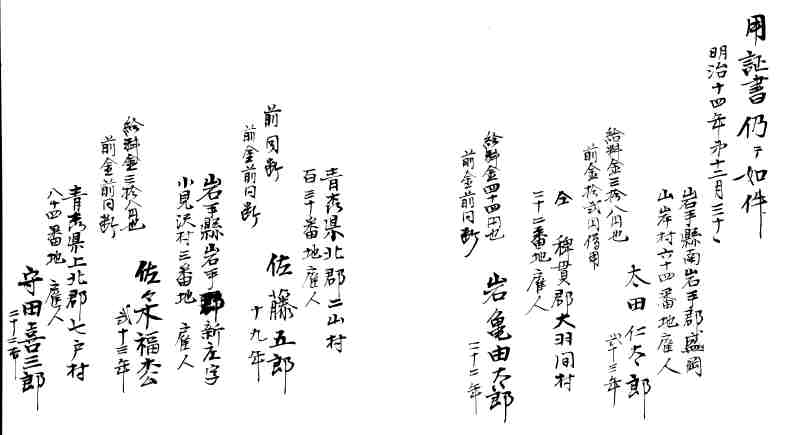 用証書仍テ如件
明治十四年第十二月三十日
岩手縣南岩手郡盛岡
山岸村六十四番地雇人
太田仁太郎
弐十三年
給料金三拾八円也
前金拾弐円借用
仝 稗貫郡大羽間村
二十二番地雇人
岩亀由太郎
二十二年
給料金四十四円也
前金前同断
青森県北郡二山村
百三十番地雇人
佐藤五郎
十九年
前同断
前金前同断
岩手縣岩手郡新庄字
小見沢村三番地 雇人
佐々木福松
弐十三年
給料金三拾八円也
前金前同断
青森県上北郡七戸村
八十四番地 雇人
守田喜三郎
二十二年